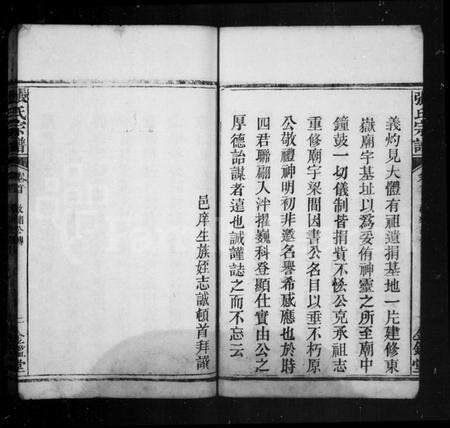 張氏宗譜
義灼見大體有祖遺捐基地一片建修東
嶽廟宇基址以爲妥侑神靈之所至廟中
鐘鼓一切儀制皆捐貲不恡公克承祖志
重修廟宇梁間因書公名目以垂不朽原
公敬禮神明初非邀名譽希感應也於時
四君聯翩入泮擢巍科登顯仕實由公之
厚德詒謀者遠也誠謹誌之而不忘云
邑庠生族姪志誠頓首拜譔
張氏宗譜
卷首
公傳
堂